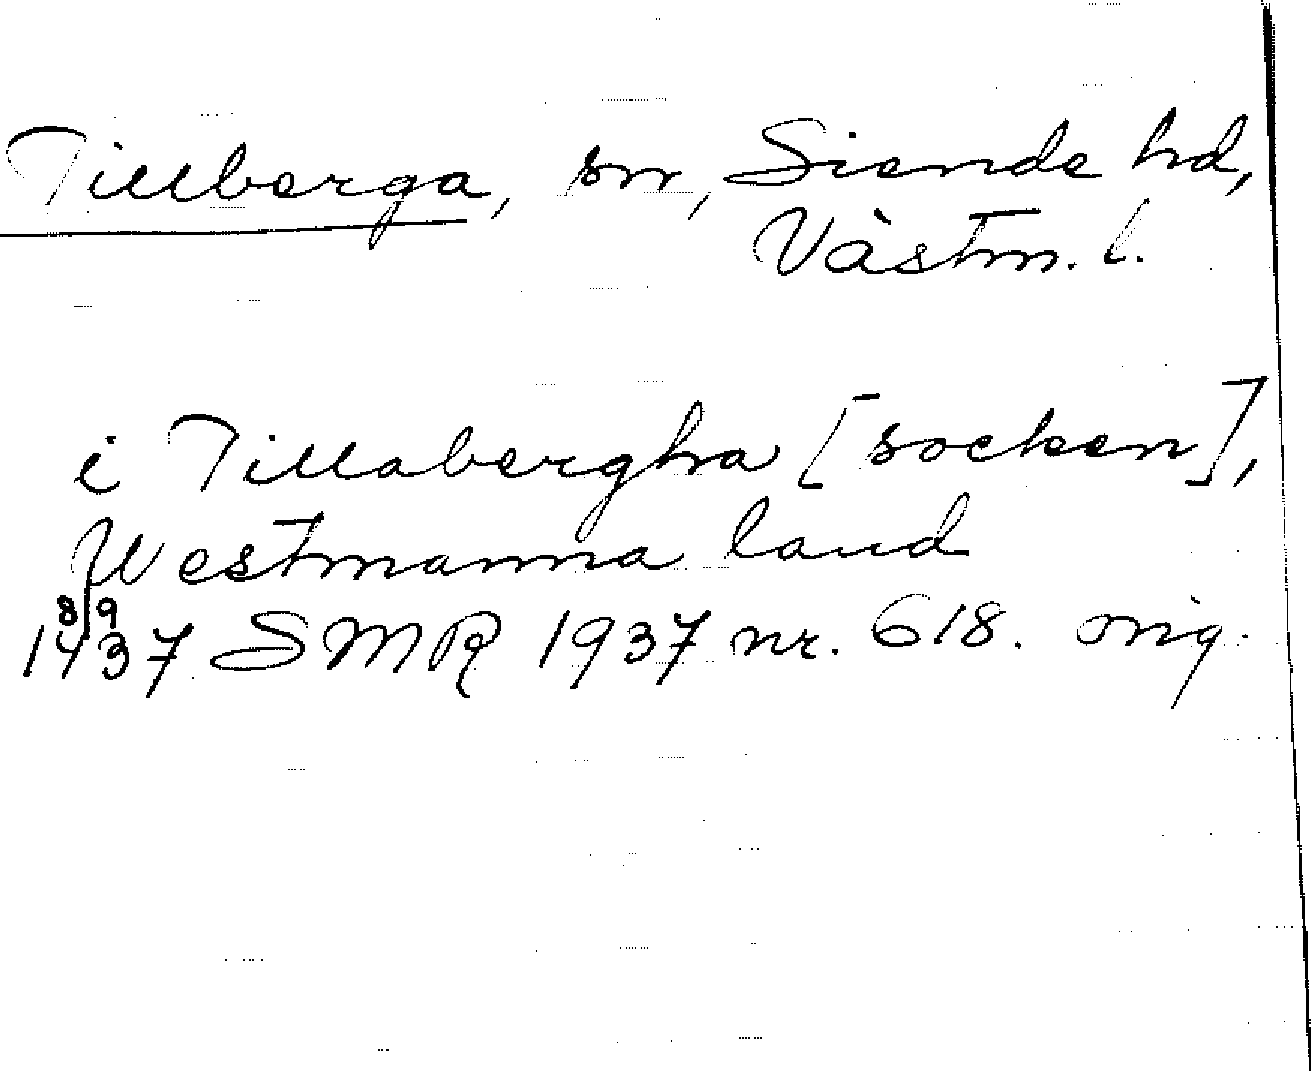 Tillberga, sn, Siende hd,
Västm. l.
i Tillabergha [socken],
Westmanna land
8/9
1437 SMR 1937 nr. 618. orig.